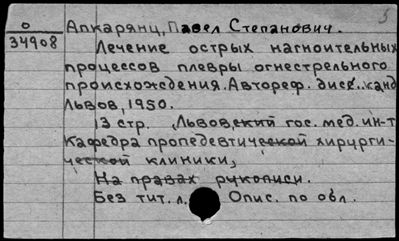 5
О Апкарянц, Павел Степанович.
34908
Лечение острых нагноительных
процессов плевры огнестрельного
происхождения. Автореф. дисс. канд
Львов, 1950.
13 стр. (Львовский гос. мед. ин-т
Кафедра пропедевтической хирурги-
ческой клиники)
На правах рукописи.
Без тит. л. Опис. по обл.